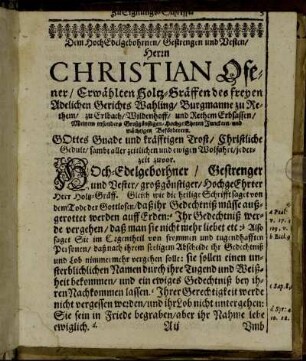 Zueignungs-Schrifft
Dem HochEdelgebohrnen / Gestrengen und Vesten /
Herrn
CHRISTIAN Ose-
ner / Erwählten Holtz-Gräffen des freyen
Adelichen Gerichts Wahling / Burgmanne zu Re-
them / zu Erlbach / Wildenhoff / und Rethem Erbsassen /
Meinem insonders Großgünstigen Hochge-Ehrten Junckern und
mächtigen Beförderern.
GOttes Gnade und kräfftigen Trost / Christliche
Gedult / sambt aller zeitlichen und ewigen Wolfahrt / jeder-
zeit zuvor.
HOch-Edelgebohrner / Gestrenger
und Vester / großgünstiger / HochgeEhrter
Herr Holtz-Gräff. Gleich wie die heilige Schrifft sagt von
dem Tode der Gottlosen / daß ihr Gedechtniß müsse auß-
gerottet werden auff Erden: Ihr Gedechtniß wer-
de vergehen / daß man sie nicht mehr liebet etc. Also
saget Sie im Gegentheil von frommen und tugendhafften
Personen / daß nach ihrem seeligen Abscheide ihr Gedechtniß
und Lob nimmermehr vergehen solle: sie sollen einen un-
sterblichlichen Namen durch ihre Tugend und Weiß-
heit bekommen / und ein ewiges Gedechtniß bey ih-
ren Nachkommen lassen. Ihrer Gerechtigkeit werde
nicht vergessen werden / und ihr Lob nicht untergehen:
Sie sein in Friede begraben / aber ihr Nahme lebe
ewiglich.
A ij
Und